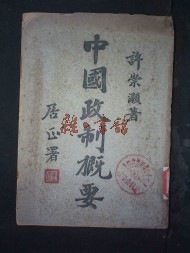 許崇灝著
中國政制概要
居正署